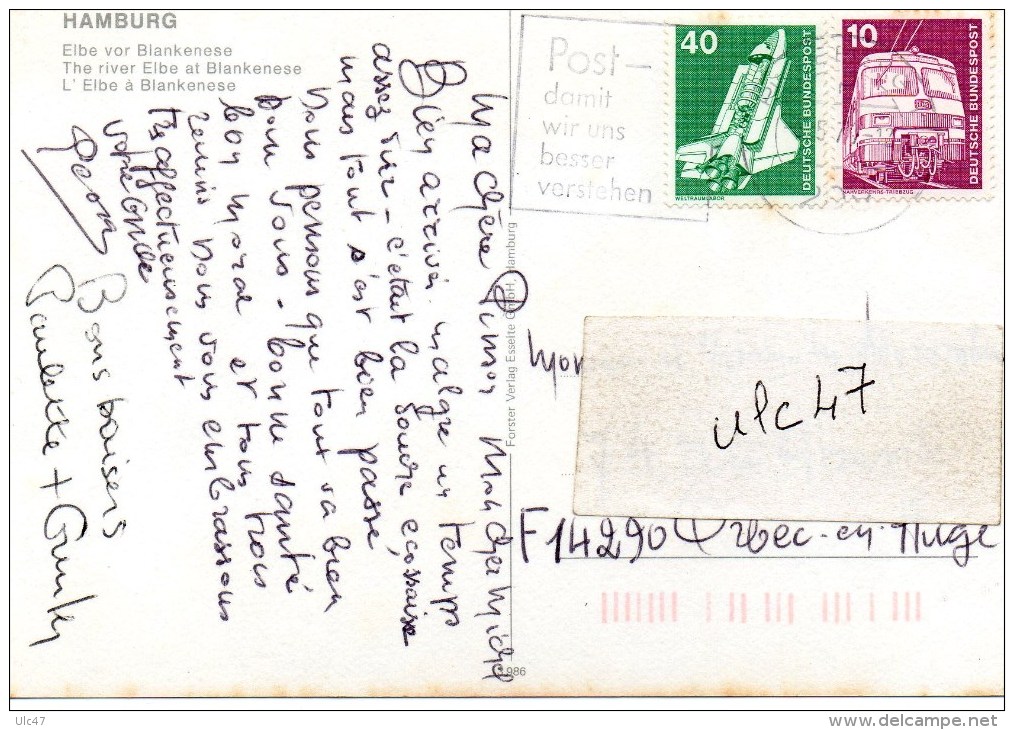 HAMBURG
Elbe vor Blankenese
The river Elbe at Blankenese
L' Elbe à Blankenese
Ma chère Simon Mon cher Michel
Bien arrivés malgré un temps
assez sur - c'était la douche écossaise
mais tout s'est bien passé,
nous pensons que tout va bien
pour vous. bonne santé
bon moral et tous trois
réunis nous vous embrassons
très affectueusement
votre
Bons baisers
Paulette +
Post -
damit
wir uns
besser
verstehen
40
DEUTSCHE BUNDESPOST
WELTRAUMLABOR
10
DEUTSCHE BUNDESPOST
NAHVERKEHRS-TRIEBZUG
Forster Verlag Esselte GmbH, Hamburg
ulc47
F 14290 Orbec-en-Auge
986
Ulc47
www.delcampe.net